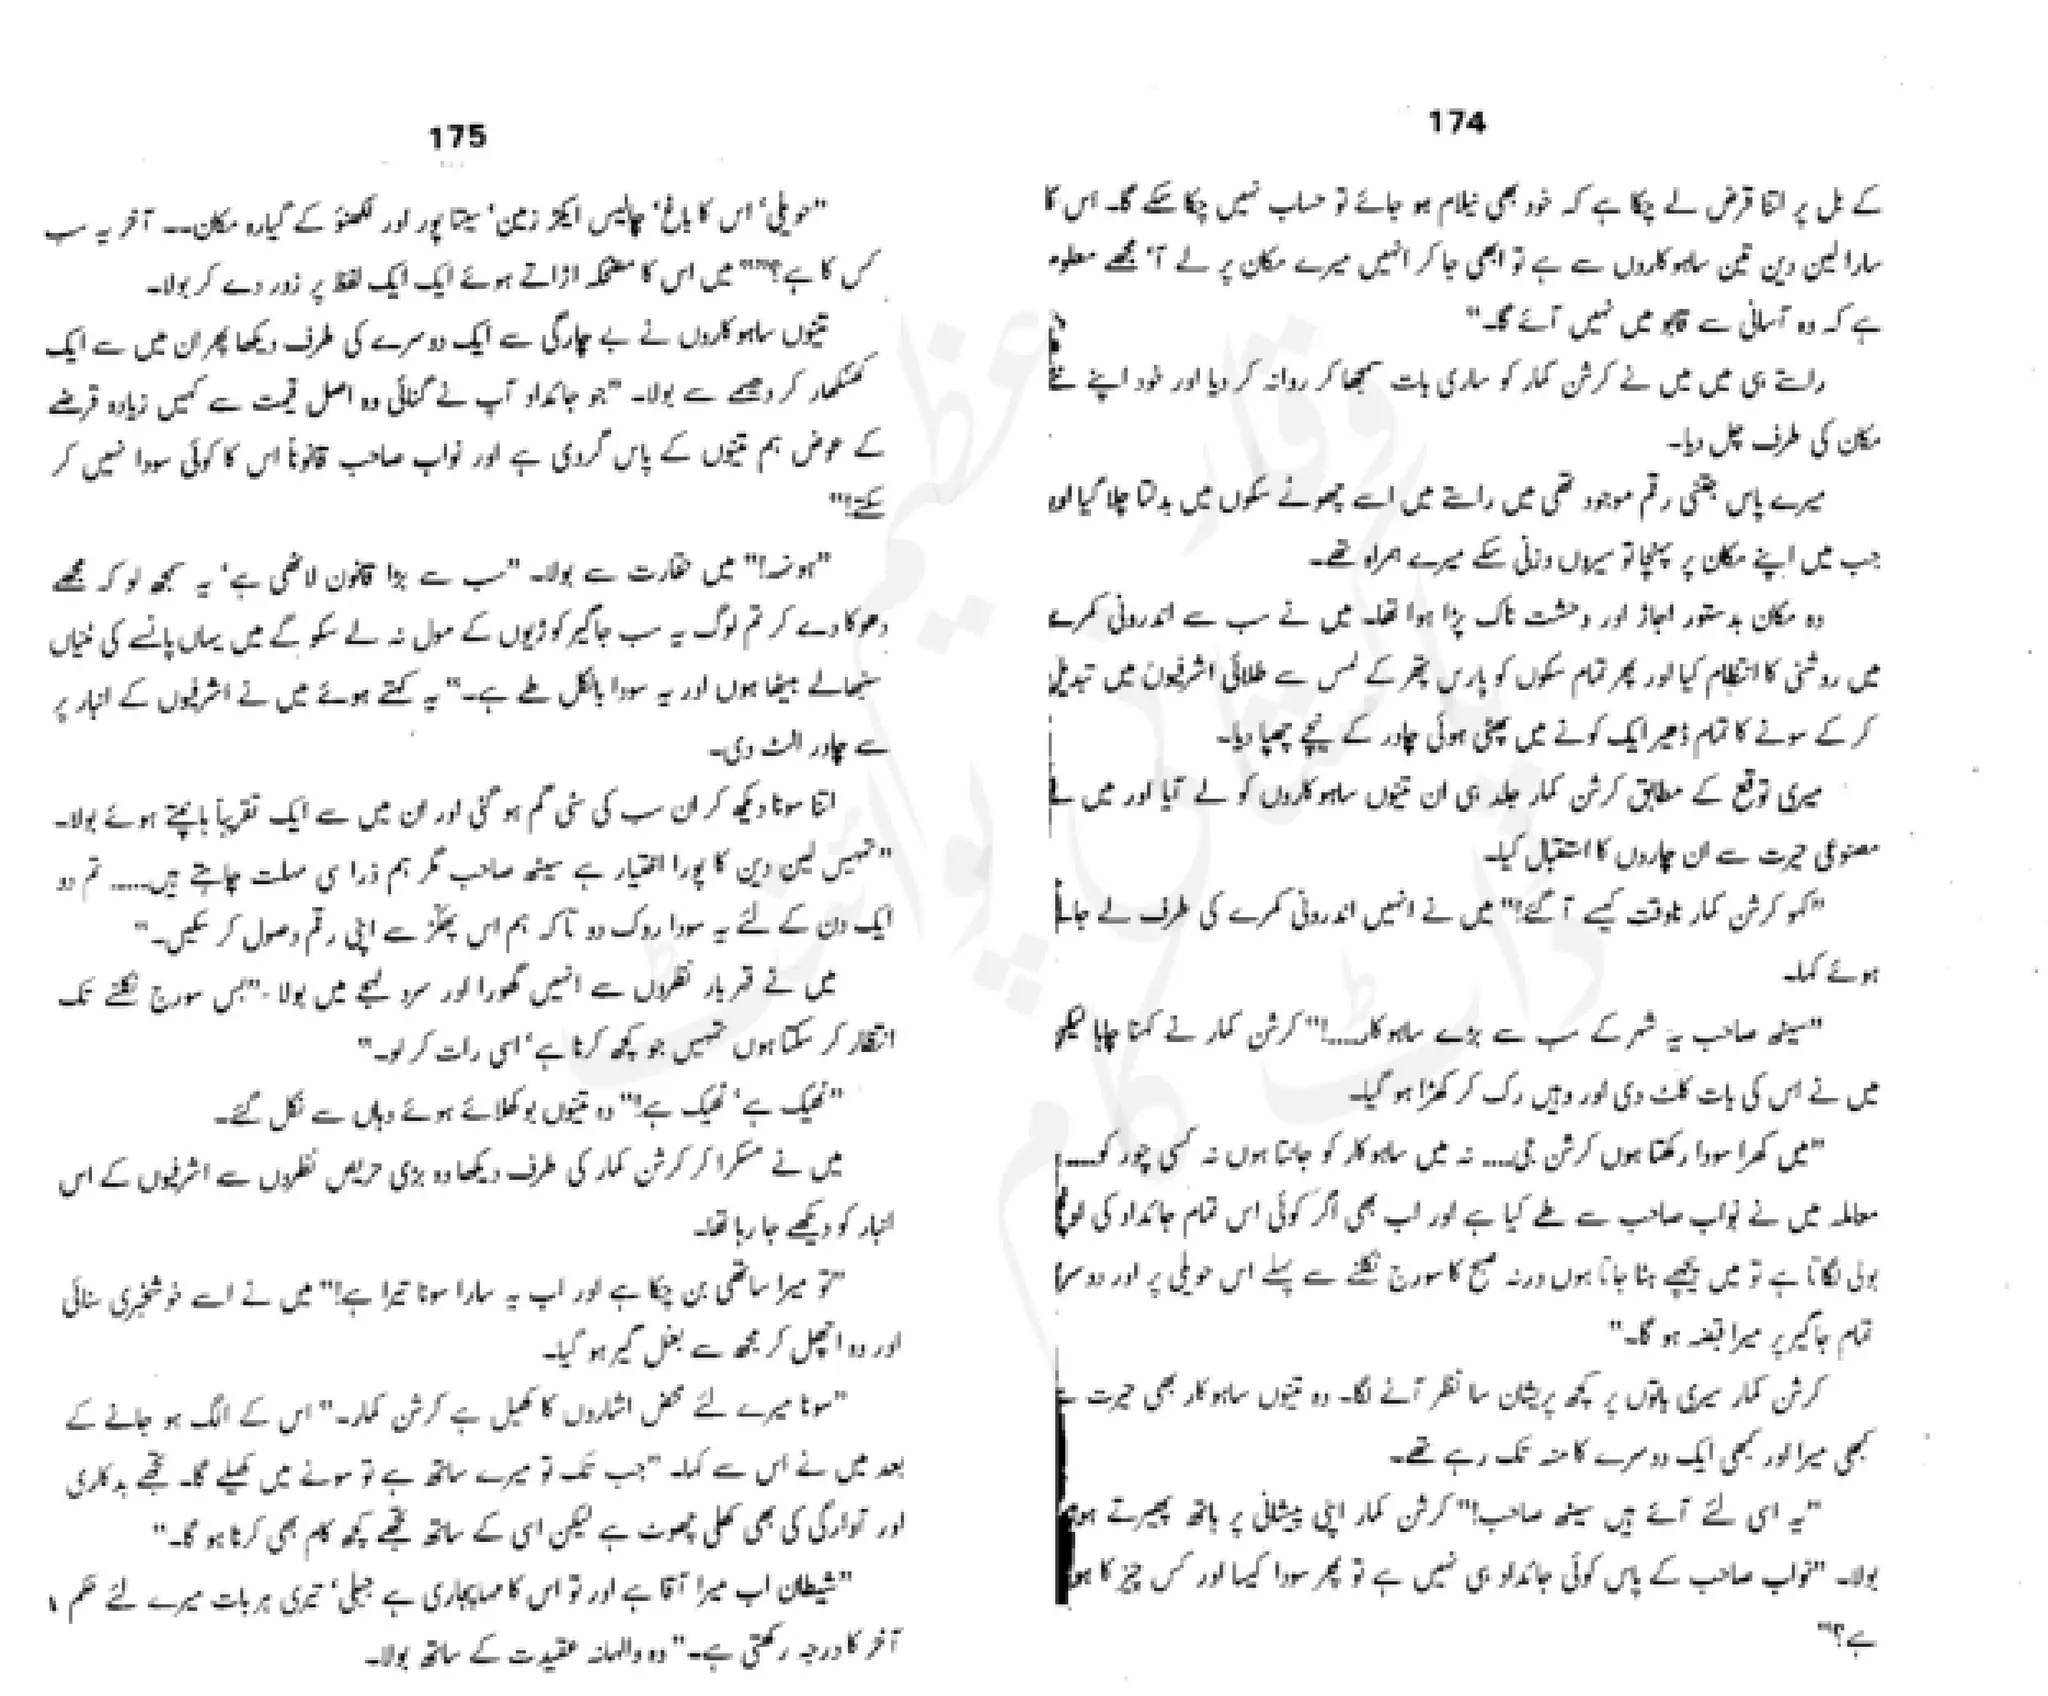 174
کے بل پر اتنا قرض لے چکا ہے کہ خود بھی نیلام ہو جائے تو حساب نہیں چکا سکے گا۔ اس کا
سارا لین دین تین ساہوکاروں سے ہے تو ابھی جا کر انہیں میرے مکان پر لے آ‘ مجھے معلوم
ہے کہ وہ آسانی سے قابو میں نہیں آئے گا۔"
راستے ہی میں میں نے کرشن کمار کو ساری بات سمجھا کر روانہ کر دیا اور خود اپنے نئے
مکان کی طرف چل دیا۔
میرے پاس جتنی رقم موجود تھی میں راستے میں اسے چھوٹے سکوں میں بدلتا چلا گیا اور
جب میں اپنے مکان پر پہنچا تو سیروں وزنی سکے میرے ہمراہ تھے۔
وہ مکان بدستور اجاڑ اور وحشت ناک پڑا ہوا تھا۔ میں نے سب سے اندرونی کمرے
میں روشنی کا انتظام کیا اور پھر تمام سکوں کو پارس پتھر کے لمس سے طلائی اشرفیوں میں تبدیل
کر کے سونے کا تمام ڈھیر ایک کونے میں پھٹی ہوئی چادر کے نیچے چھپا دیا۔
میری توقع کے مطابق کرشن کمار جلد ہی ان تینوں ساہوکاروں کو لے آیا اور میں نے
مصنوعی حیرت سے ان چاروں کا استقبال کیا۔
"کہو کرشن کمار ناوقت کیسے آ گئے!" میں نے انہیں اندرونی کمرے کی طرف لے جاتے
ہوئے کہا۔
"سیٹھ صاحب یہ شہر کے سب سے بڑے ساہوکار....!" کرشن کمار نے کہنا چاہا لیکن
میں نے اس کی بات کاٹ دی اور وہیں رک کر کھڑا ہو گیا۔
"میں کھرا سودا رکھتا ہوں کرشن جی.... نہ میں ساہوکار کو جانتا ہوں نہ کسی چور کو....
معاملہ میں نے نواب صاحب سے طے کیا ہے اور اب بھی اگر کوئی اس تمام جائداد کی
بولی لگاتا ہے تو میں پیچھے ہٹا جاتا ہوں ورنہ صبح کا سورج نکلنے سے پہلے اس حویلی پر اور دوسری
تمام جاگیر پر میرا قبضہ ہو گا۔"
کرشن کمار میری باتوں پر کچھ پریشان سا نظر آنے لگا۔ وہ تینوں ساہوکار بھی حیرت سے
کبھی میرا اور کبھی ایک دوسرے کا منہ تک رہے تھے۔
"یہ اسی لئے آئے ہیں سیٹھ صاحب!" کرشن کمار اپنی پیشانی پر ہاتھ پھیرتے ہوئے
بولا۔ "نواب صاحب کے پاس کوئی جائداد ہی نہیں ہے تو پھر سودا کیسا اور کس چیز کا ہوا
ہے؟"
175
"حویلی‘ اس کا باغ‘ چالیس ایکڑ زمین‘ سیتا پور اور لکھنؤ کے گیارہ مکان۔۔ آخر یہ سب
کس کا ہے؟" میں اس کا مضحکہ اڑاتے ہوئے ایک ایک لفظ پر زور دے کر بولا۔
تینوں ساہوکاروں نے بے چارگی سے ایک دوسرے کی طرف دیکھا پھر ان میں سے ایک
کھنکھار کر دھیمے سے بولا۔ "جو جائداد آپ نے گنائی وہ اصل قیمت سے کہیں زیادہ قرضے
کے عوض ہم تینوں کے پاس گروی ہے اور نواب صاحب قانوناً اس کا کوئی سودا نہیں کر
سکتے!"
"ہونہہ!" میں حقارت سے بولا۔ "سب سے بڑا قانون لاٹھی ہے‘ یہ سمجھ لو کہ مجھے
دھوکا دے کر تم لوگ یہ سب جاگیر کوڑیوں کے مول نہ لے سکو گے میں یہاں پانسے کی تھیلیاں
سنبھالے بیٹھا ہوں اور یہ سودا بالکل طے ہے۔" یہ کہتے ہوئے میں نے اشرفیوں کے انبار پر
سے چادر الٹ دی۔
اتنا سونا دیکھ کر ان سب کی سٹی گم ہو گئی اور ان میں سے ایک تقریباً ہانپتے ہوئے بولا۔
"تمہیں لین دین کا پورا اختیار ہے سیٹھ صاحب مگر ہم ذرا سی مہلت چاہتے ہیں..... تم دو
ایک دن کے لئے یہ سودا روک دو تاکہ ہم اس پھکڑ سے اپنی رقم وصول کر سکیں۔"
میں نے قہربار نظروں سے انہیں گھورا اور سرد لہجے میں بولا۔ "بس سورج نکلنے تک
انتظار کر سکتا ہوں تمہیں جو کچھ کرنا ہے‘ اسی رات کر لو۔"
"ٹھیک ہے‘ ٹھیک ہے!" وہ تینوں بوکھلائے ہوئے وہاں سے نکل گئے۔
میں نے مسکرا کر کرشن کمار کی طرف دیکھا وہ بڑی حریص نظروں سے اشرفیوں کے اس
انبار کو دیکھے جا رہا تھا۔
"تو میرا ساتھی بن چکا ہے اور اب یہ سارا سونا تیرا ہے!" میں نے اسے خوشخبری سنائی
اور وہ اچھل کر مجھ سے بغل گیر ہو گیا۔
"سونا میرے لئے محض اشاروں کا کھیل ہے کرشن کمار۔" اس کے الگ ہو جانے کے
بعد میں نے اس سے کہا۔ "جب تک تو میرے ساتھ ہے تو سونے میں کھیلے گا۔ تجھے بدکاری
اور آوارگی کی بھی کھلی چھوٹ ہے لیکن اسی کے ساتھ تجھے کچھ کام بھی کرنا ہو گا۔"
"شیطان اب میرا آقا ہے اور تو اس کا مہاپجاری ہے جبلی‘ تیری ہر بات میرے لئے حکم
آخر کا درجہ رکھتی ہے۔" وہ والہانہ عقیدت کے ساتھ بولا۔
پاکستانی پوائنٹ ڈاٹ کام
وقار عظیم